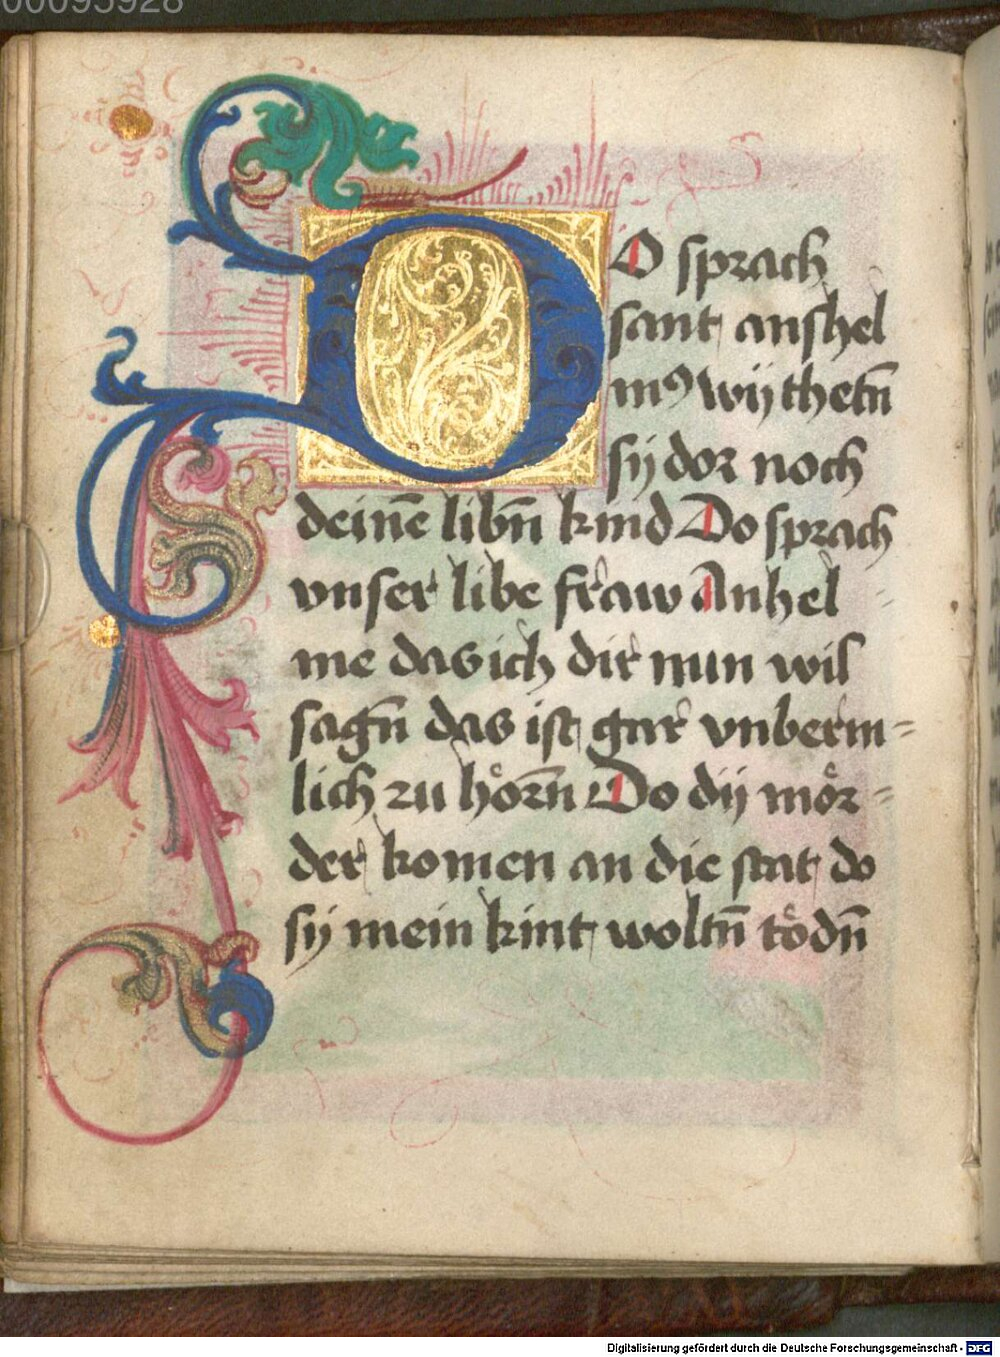 00095928
DO sprach
sant anshel
mꝰ wij thetn̄
sij dor noch
deinē libn̄ kind Do sprach
vnser libe fraw Anhel
me das ich dir nun wil
sagn̄ das ist gar vnberm=
lich zu hoͤrn̄ Do dij moͤr=
der komen an die stat do
sij mein kint woltn̄ toͤdn̄
Digitalisierung gefördert durch die Deutsche Forschungsgemeinschaft - DFG